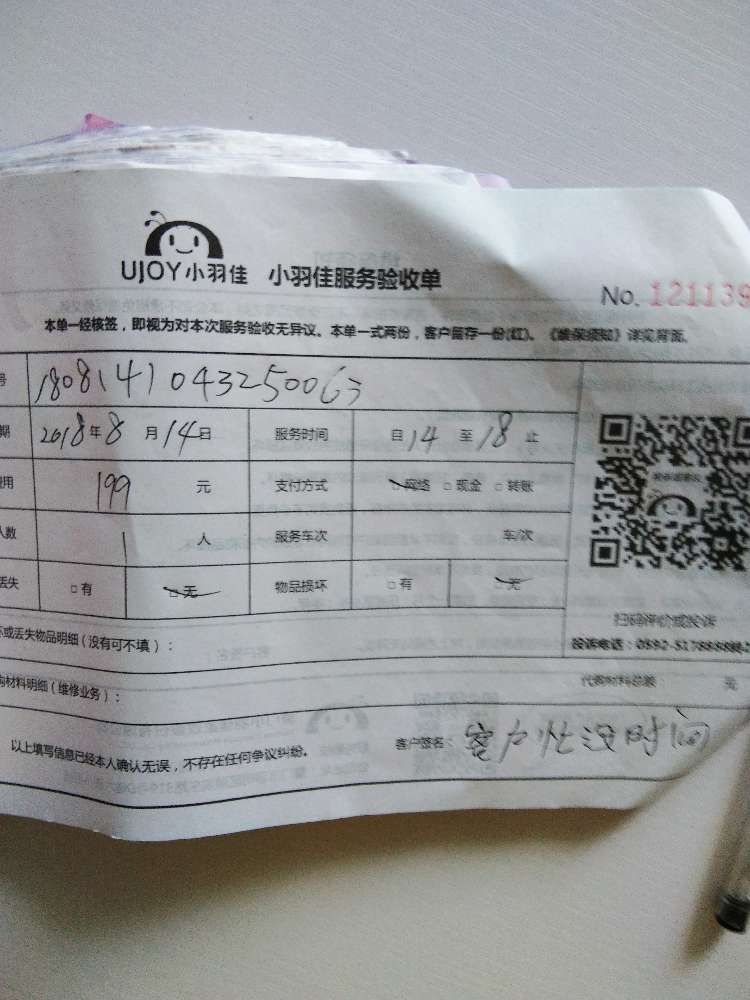 UJOY小羽佳 小羽佳服务验收单
No. 121139
本单一经核签，即视为对本次服务验收无异议。本单一式两份，客户留存一份(红)。《维保须知》详见背面。
号 1808141043250063
期 2018年8月14日 服务时间 自14至18止
用 199 元 支付方式 □网络 □现金 □转账
人数 1 人 服务车次 车/次
丢失 □有 □无 物品损坏 □有 □无
扫码评价或投诉
坏或丢失物品明细（没有可不填）：
投诉电话：0592-5178888
购材料明细（维修业务）：
代购材料总额 元
以上填写信息已经本人确认无误，不存在任何争议纠纷。
客户签名：客户忙没时间